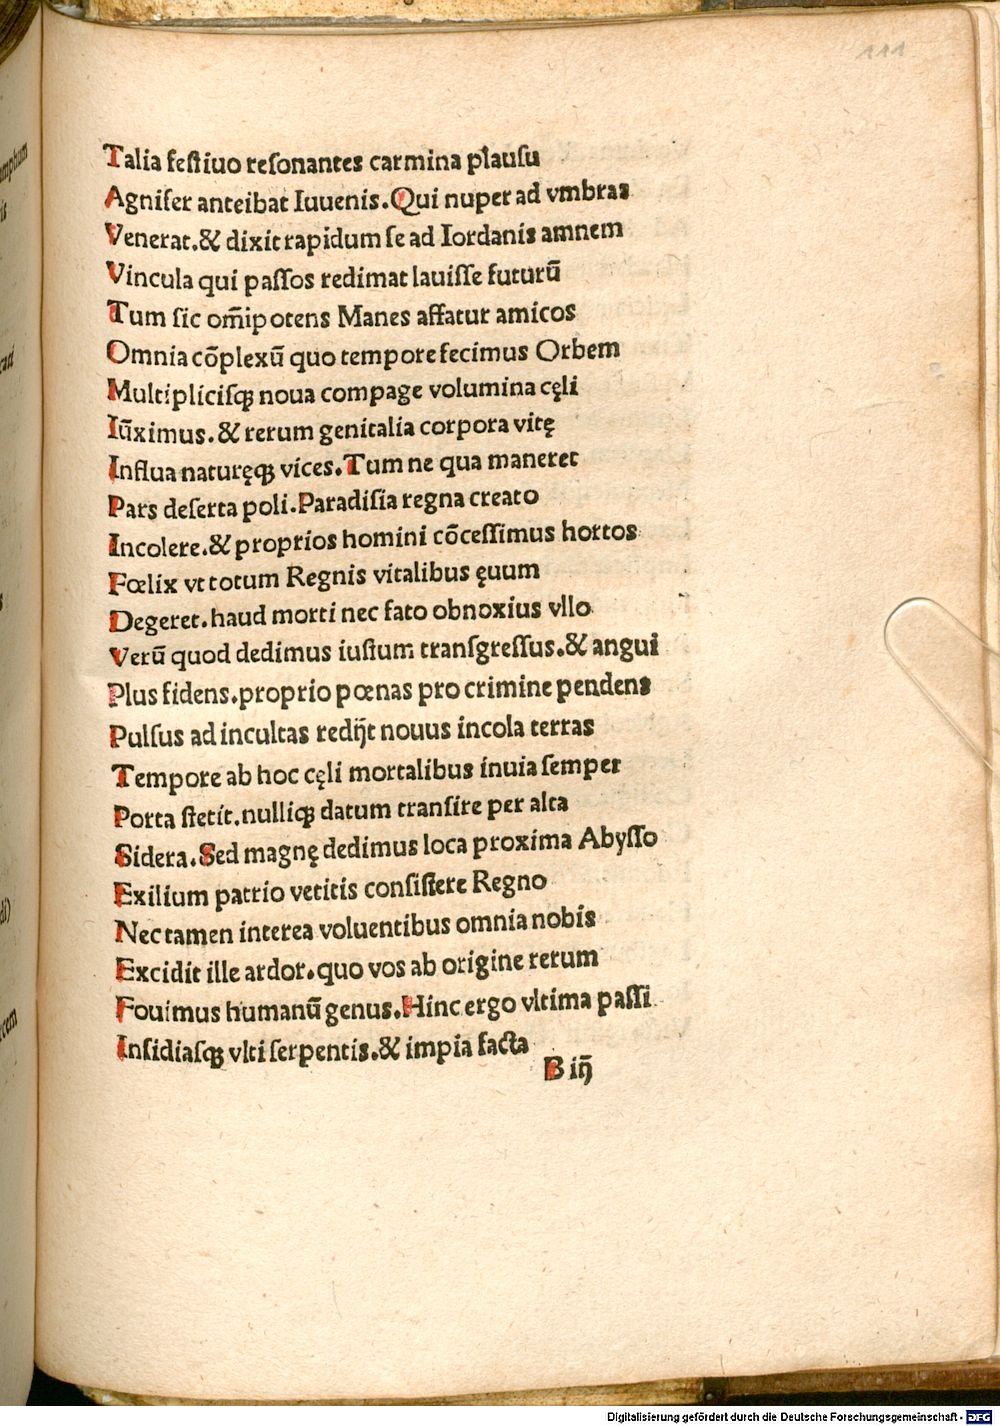 111
Talia feſtiuo reſonantes carmina plauſu
Agnifer anteibat Iuuenis. Qui nuper ad vmbras
Venerat. & dixit rapidum ſe ad Iordanis amnem
Vincula qui paſſos redimat lauiſſe futurũ
Tum ſic om̃ipotens Manes affatur amicos
Omnia cõplexũ quo tempore fecimus Orbem
Multipliciſqꝫ noua compage volumina cęli
Iũximus. & rerum genitalia corpora vitę
Influa naturęqꝫ vices. Tum ne qua maneret
Pars deſerta poli. Paradiſia regna creato
Incolere. & proprios homini cõceſſimus hortos
Fœlix vt totum Regnis vitalibus ęuum
Degeret. haud morti nec fato obnoxius vllo
Verũ quod dedimus iuſtum tranſgreſſus. & angui
Plus fidens. proprio pœnas pro crimine pendens
Pulſus ad incultas redijt nouus incola terras
Tempore ab hoc cęli mortalibus inuia ſemper
Porta ſtetit. nulliqꝫ datum tranſire per alta
Sidera. Sed magnę dedimus loca proxima Abyſſo
Exilium patrio vetitis conſiſtere Regno
Nec tamen interea voluentibus omnia nobis
Excidit ille ardor. quo vos ab origine rerum
Fouimus humanũ genus. Hinc ergo vltima paſſi
Inſidiaſqꝫ vlti ſerpentis. & impia facta
B iij̃
Digitalisierung gefördert durch die Deutsche Forschungsgemeinschaft - DFG